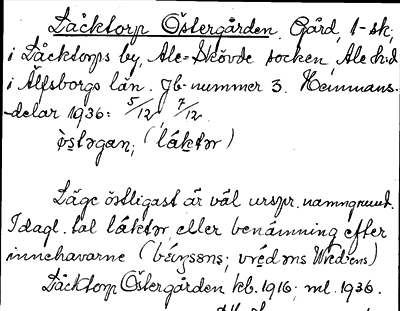 Låcktorp Östergården, Gård, 1-sk,
i Låcktorps by, Ale-Skövde socken, Ale h:d
i Älfsborgs län. Jb-nummer 3. Hemmans-
delar 1936: 5/12, 7/12.
ö̀stəgan; (láktər)
Läge östligast är väl urspr. namngrund.
I dagl. tal láktər eller benämning efter
innehavarne (béŋsəns; vrédəns Wredens)
Låcktorp Östergården kb. 1916; ml. 1936.